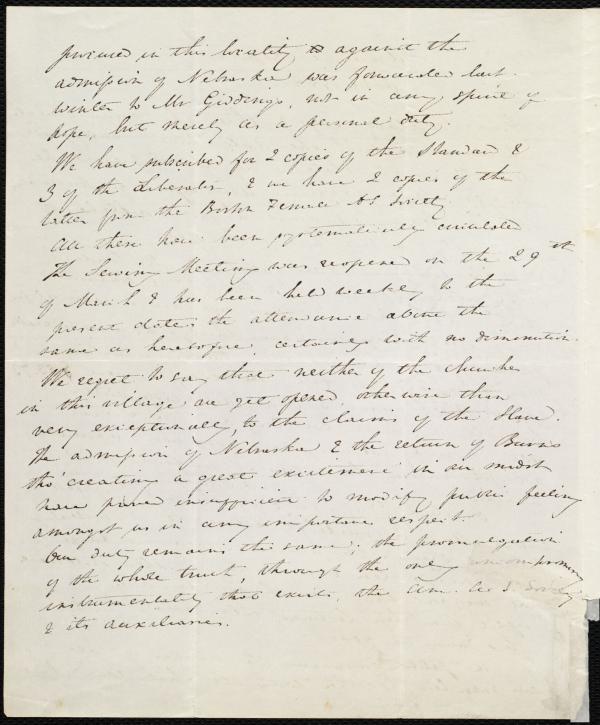 procured in this locality against the
admission of Nebraska was forwarded last
winter to Mr Giddings, not in any spirit of
hope, but merely as a personal duty.
We have subscribed for 2 copies of the Standard &
3 of the Liberator, & we have 2 copies of the
latter from the Boston Female AS Society
All these have been systematically circulated
The Sewing Meeting was reopened on the 29th
of March & has been held weekly to the
present date, the attendance about the
same as heretofore, certainly with no diminution.
We regret to say that neither of the churches
in this village are yet opened, otherwise than
very exceptionally, to the claims of the Slave.
The admission of Nebraska & the return of Burns
tho' creating a great excitement in our midst
have proved insufficient to modify public feeling
amongst us in any important respect.
Our duty remains the same; the promulgation
of the whole truth, through the only uncompromising
instrumentality that exists, the Am. A. S. Society
& its auxiliaries.